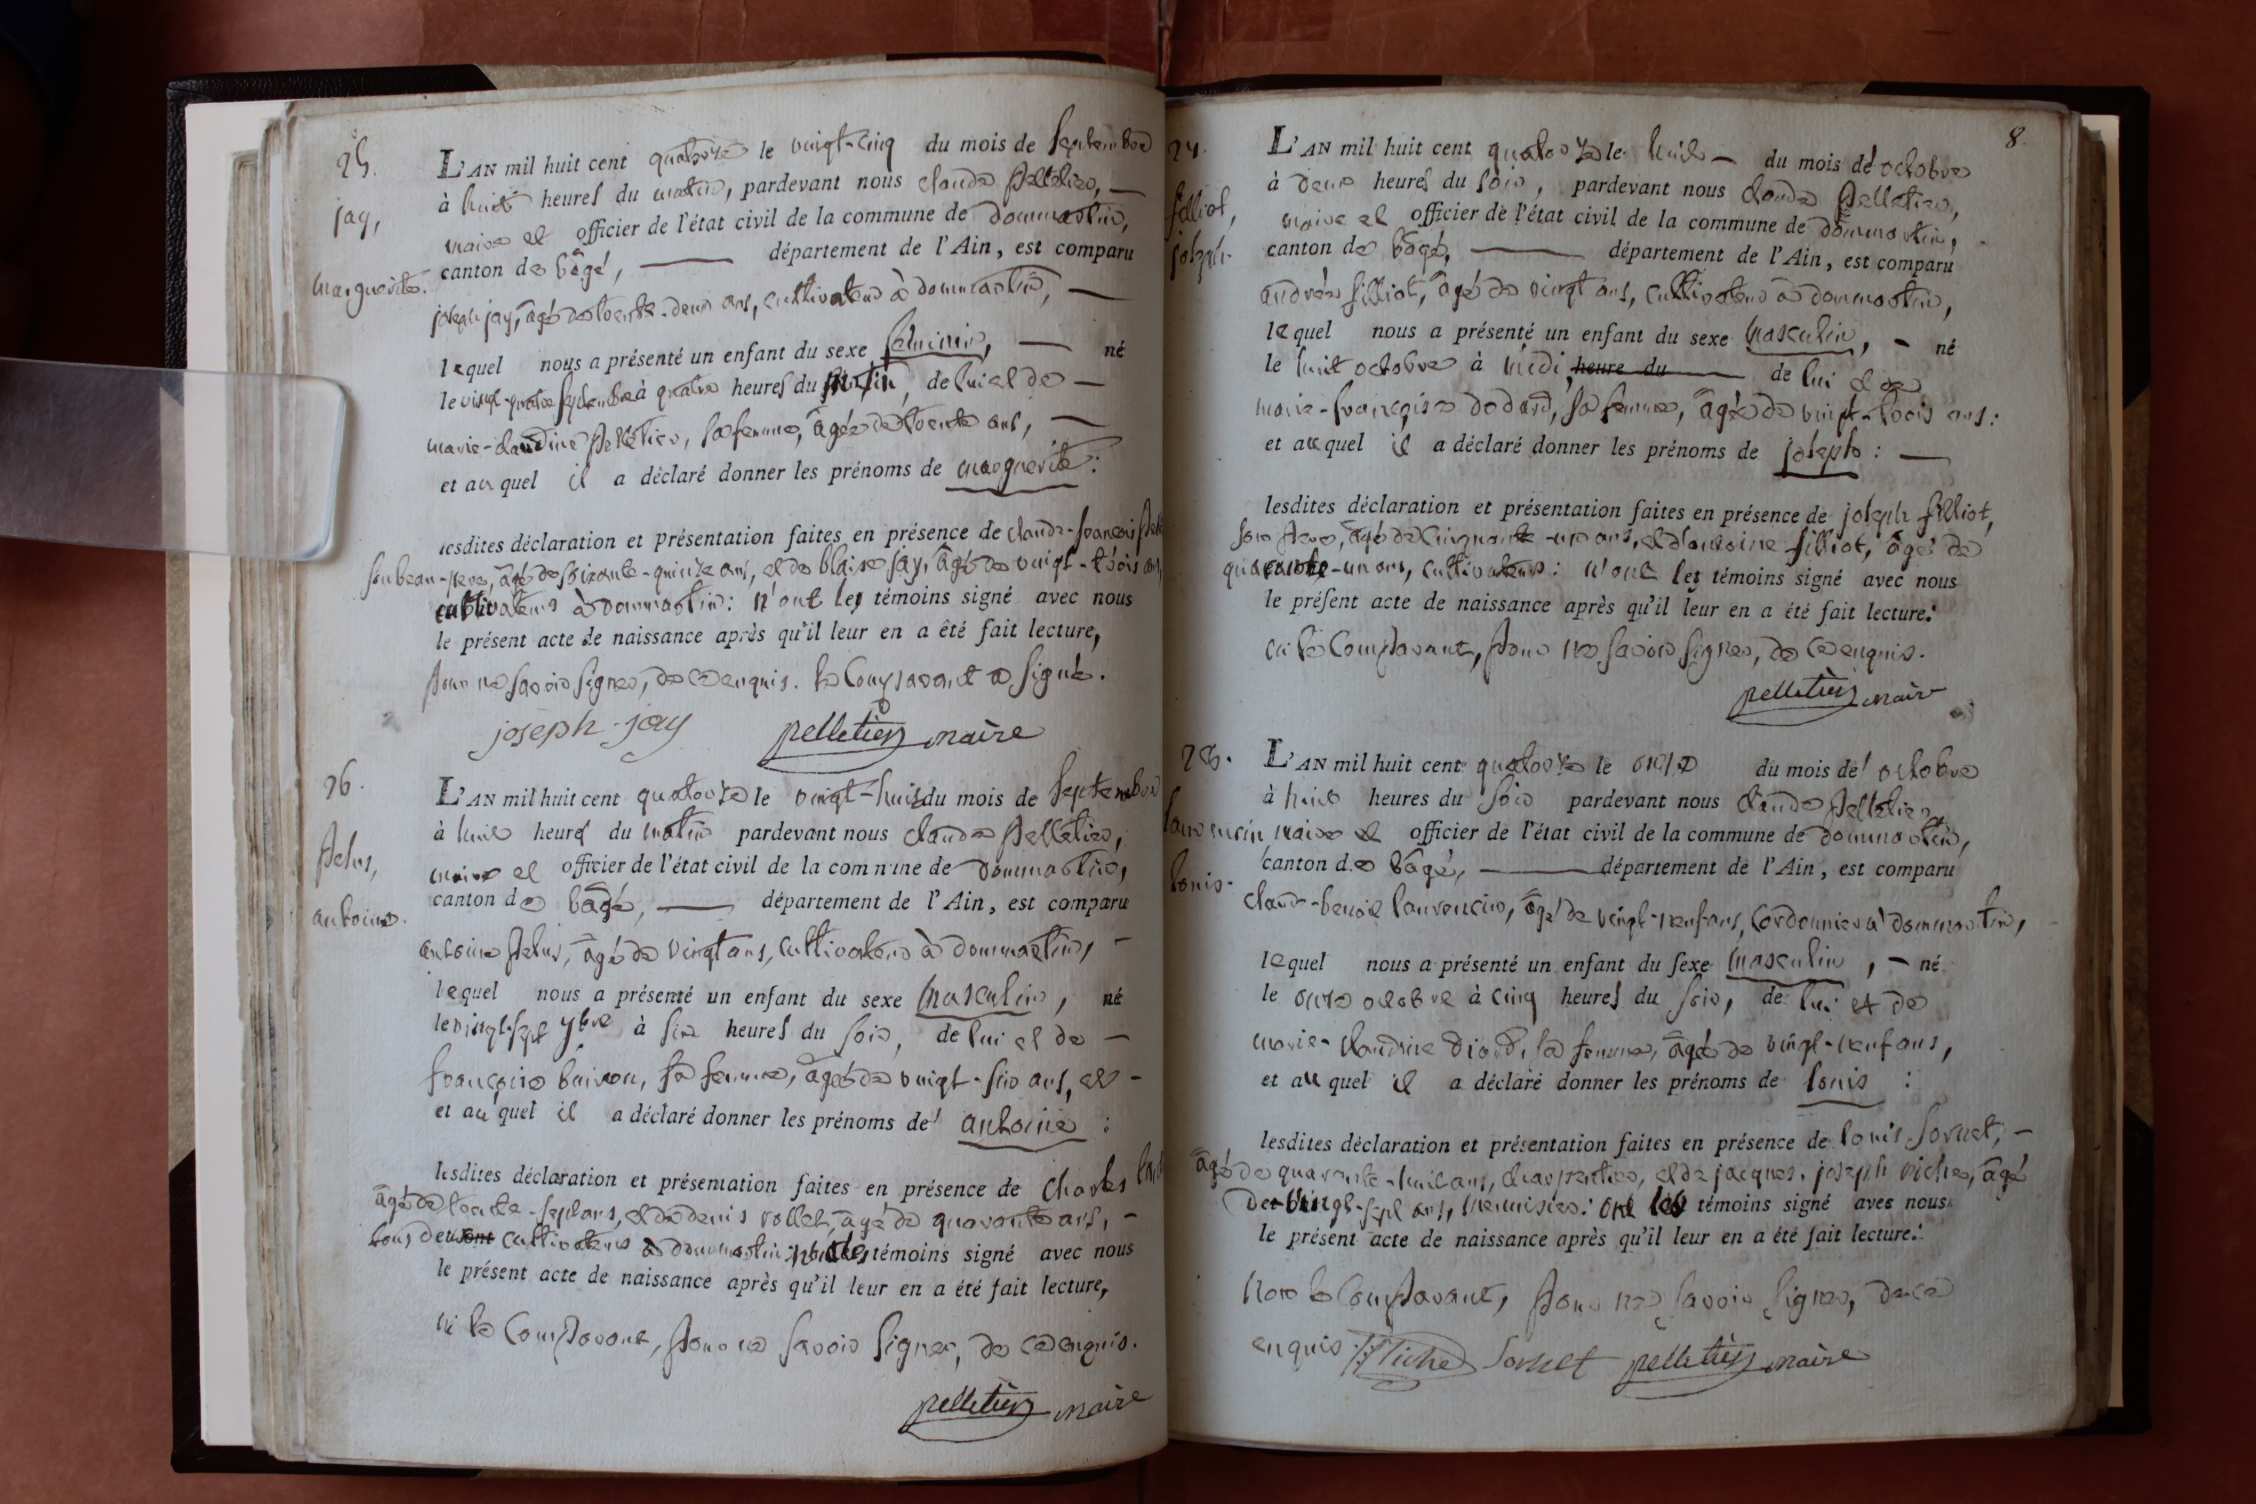 25.
jay,
marguerite.
L'AN mil huit cent quatorze le vingt-cinq du mois de septembre
à huit heures du matin, pardevant nous claude pelletier,
maire et officier de l'état civil de la commune de dommartin,
canton de bâgé, département de l'Ain, est comparu
joseph jay, âgé de trente-deux ans, cultivateur à dommartin,
lequel nous a présenté un enfant du sexe feminin, né
le vingt-quatre septembre à quatre heures du matin, de lui et de
marie-claudine pelletier, sa femme, âgée de trente ans,
et auquel il a déclaré donner les prénoms de marguerite:
lesdites déclaration et présentation faites en présence de claude-françois
son beau-pere, âgé de soixante-quinze ans, et de blaise jay, âgé de vingt-trois ans,
cultivateurs à dommartin: n'ont les témoins signé avec nous
le présent acte de naissance après qu'il leur en a été fait lecture,
pour ne savoir signer, de ce enquis. le comparant a signé.
joseph jay pelletier maire
26.
pelus,
antoine.
L'AN mil huit cent quatorze le vingt-huit du mois de septembre
à huit heures du matin pardevant nous claude pelletier,
maire et officier de l'état civil de la commune de dommartin,
canton de bâgé, département de l'Ain, est comparu
antoine pelus, âgé de vingt ans, cultivateur à dommartin,
lequel nous a présenté un enfant du sexe masculin, né
le vingt-sept 7bre à six heures du soir, de lui et de
françoise buiron, sa femme, âgée de vingt-six ans, et
et auquel il a déclaré donner les prénoms de antoine:
lesdites déclaration et présentation faites en présence de charles
âgé de trente-sept ans, et de denis rollet, âgé de quarante ans,
tous deux cultivateurs à dommartin: témoins signé avec nous
le présent acte de naissance après qu'il leur en a été fait lecture,
ni le comparant, pour ne savoir signer, de ce enquis.
pelletier maire
8.
27.
filliot,
joseph.
L'AN mil huit cent quatorze le huit du mois de octobre
à deux heures du soir, pardevant nous claude pelletier,
maire et officier de l'état civil de la commune de dommartin,
canton de bâgé, département de l'Ain, est comparu
andré filliot, âgé de vingt ans, cultivateur à dommartin,
lequel nous a présenté un enfant du sexe masculin, né
le huit octobre à midi, heure du de lui et de
marie-françoise dodard, sa femme, âgée de vingt-trois ans:
et auquel il a déclaré donner les prénoms de joseph:
lesdites déclaration et présentation faites en présence de joseph filliot,
son pere, âgé de cinquante-un ans, et d'antoine filliot, âgé de
quarante-un ans, cultivateurs: n'ont les témoins signé avec nous
le présent acte de naissance après qu'il leur en a été fait lecture:
ni le comparant, pour ne savoir signer, de ce enquis.
pelletier maire
28.
laurencin
louis.
L'AN mil huit cent quatorze le onze du mois de octobre
à huit heures du soir pardevant nous claude pelletier,
maire et officier de l'état civil de la commune de dommartin,
canton de bâgé, département de l'Ain, est comparu
claude-benoit laurencin, âgé de vingt-neuf ans, cordonnier à dommartin,
lequel nous a présenté un enfant du sexe masculin, né
le onze octobre à cinq heures du soir, de lui et de
marie-claudine diord, sa femme, âgée de vingt-neuf ans,
et auquel il a déclaré donner les prénoms de louis:
lesdites déclaration et présentation faites en présence de louis sornet,
âgé de quarante-huit ans, charpentier, et de jacques-joseph viche, âgé
de vingt-sept ans, menuisier: ont les témoins signé avec nous
le présent acte de naissance après qu'il leur en a été fait lecture:
non le comparant, pour ne savoir signer, de ce
enquis. Viche sornet pelletier maire